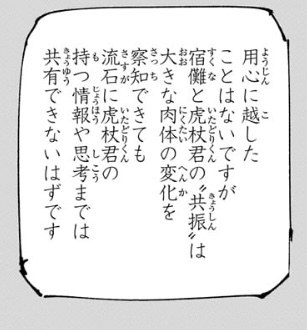 用心に越した
ことはないですが
宿儺と虎杖君の〝共振〟は
大きな肉体の変化を
察知できても
流石に虎杖君の
持つ情報や思考までは
共有できないはずです